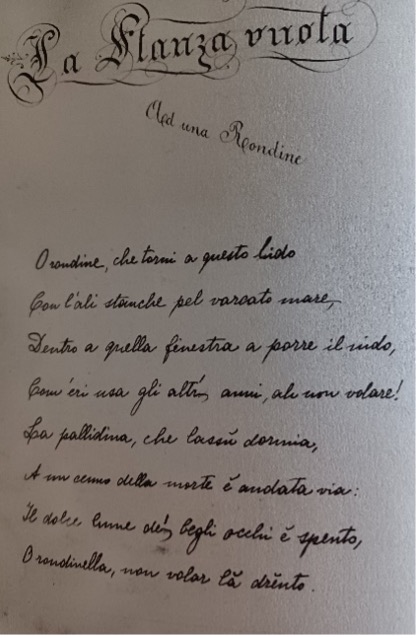 La Stanza vuota
Ad una Rondine
O rondine, che torni a questo lido
Con l'ali stanche pel varcato mare,
Dentro a quella finestra a porre il nido,
Com'eri usa gli altri anni, ah non volare!
La pallidina, che lassù dormia,
A un cenno della morte è andata via:
Il dolce lume dei begli occhi è spento,
O rondinella, non volar là drento.